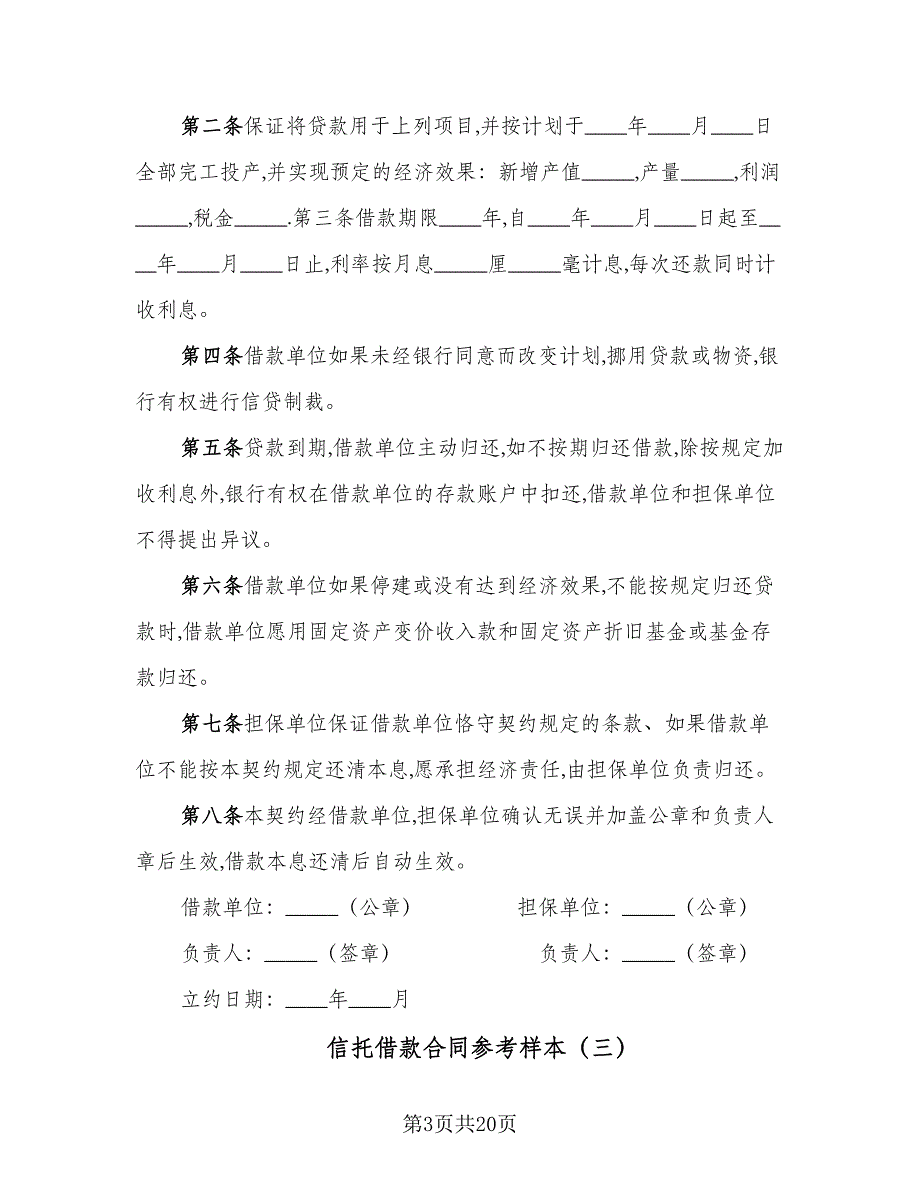 第二条保证将贷款用于上列项目,并按计划于____年____月____日
全部完工投产,并实现预定的经济效果：新增产值_____,产量_____,利润
_____,税金_____.第三条借款期限____年,自____年____月____日起至__
__年____月____日止,利率按月息_____厘_____毫计息,每次还款同时计
收利息。
第四条借款单位如果未经银行同意而改变计划,挪用贷款或物资,银
行有权进行信贷制裁。
第五条贷款到期,借款单位主动归还,如不按期归还借款,除按规定加
收利息外,银行有权在借款单位的存款账户中扣还,借款单位和担保单位
不得提出异议。
第六条借款单位如果停建或没有达到经济效果,不能按规定归还贷
款时,借款单位愿用固定资产变价收入款和固定资产折旧基金或基金存
款归还。
第七条担保单位保证借款单位恪守契约规定的条款、如果借款单
位不能按本契约规定还清本息,愿承担经济责任,由担保单位负责归还。
第八条本契约经借款单位,担保单位确认无误并加盖公章和负责人
章后生效,借款本息还清后自动生效。
借款单位：_____（公章） 担保单位：_____（公章）
负责人：_____（签章） 负责人：_____（签章）
立约日期：____年____月
信托借款合同参考样本（三）
第3页共20页